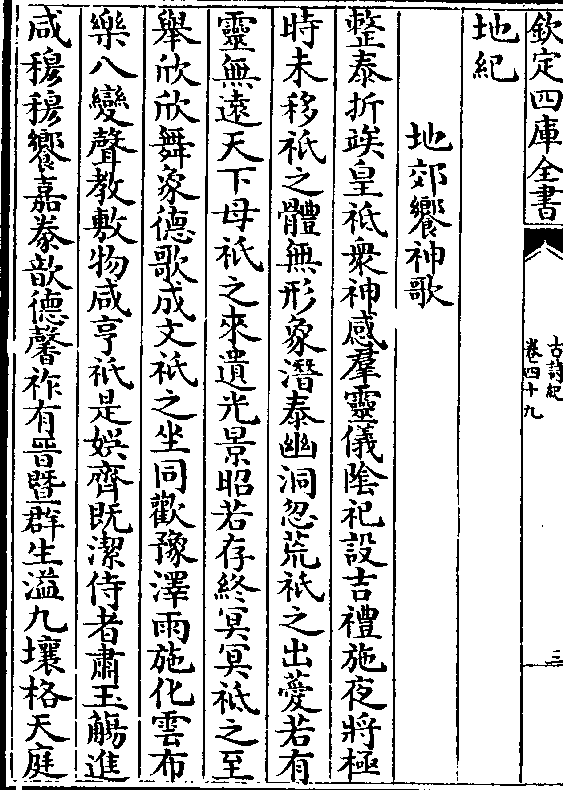 欽定四庫全書
古詩紀
卷四十九
三
地紀
地郊饗神歌
整泰折竢皇祗衆神感羣靈儀陰祀設吉禮施夜將極
時未移祗之體無形象潛泰幽洞忽荒祗之出薆若有
靈無遠天下母祗之來遺光景昭若存終冥冥祗之至
舉欣欣舞象德歌成文祗之坐同歡豫澤雨施化雲布
樂八變聲教敷物咸亨祗是娯齊既潔侍者肅玉觴進
咸穆穆饗嘉豢歆德馨祚有晉暨群生溢九壤格天庭